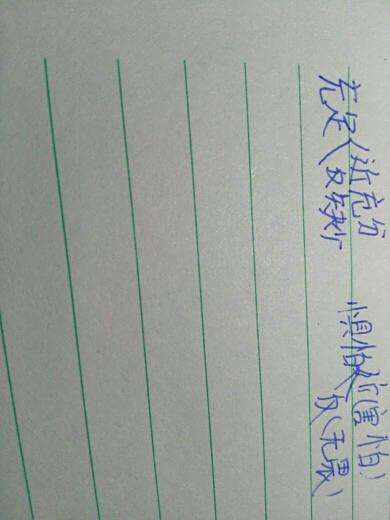 充足 近充分
反缺少
惧怕 近(害怕)
反(无畏)